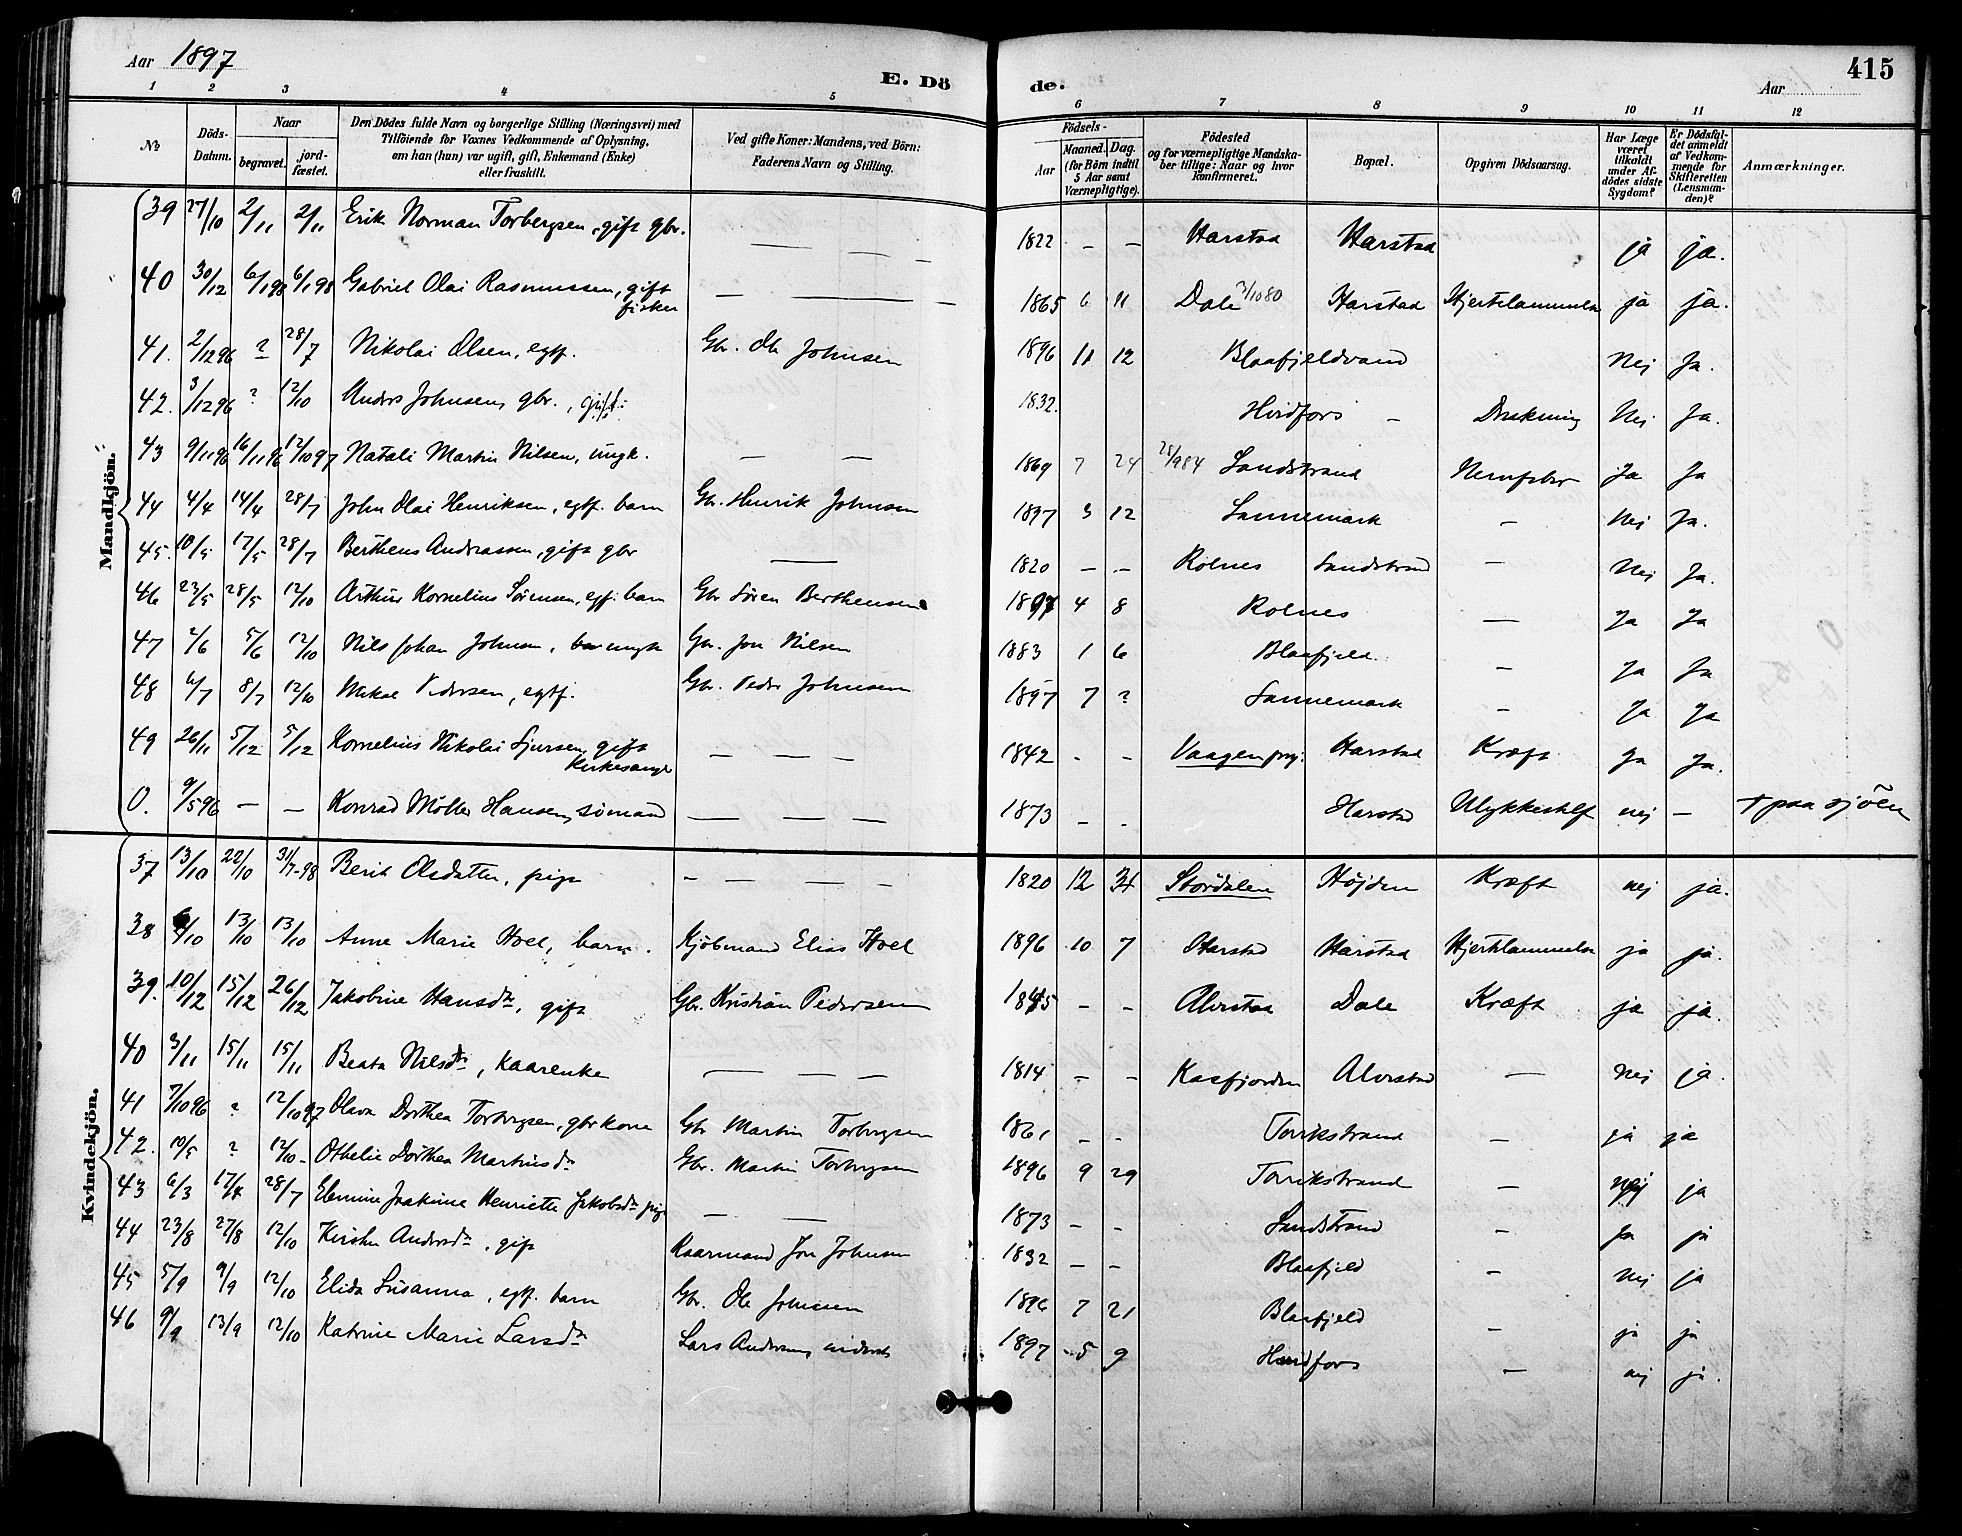 Aar 1897 E. Dö de. Aar 415
1 2 3 4 5 6 7 8 9 10 11 12
No Döds-Datum. Naar begravet. jord-fæstet. Den Dödes fulde Navn og borgerlige Stilling (Næringsvei) med Tilföiende for Voxnes Vedkommende af Oplysning, om han (hun) var ugift, gift, Enkemand (Enke) eller fraskilt. Ved gifte Koner: Mandens, ved Börn: Faderens Navn og Stilling. Födsels- Aar Maaned. Dag. (for Börn indtil 5 Aar samt Værnepligtige). Födested og for værnepligtige Mandska-ber tillige: Naar og hvor Konfirmeret. Bopæl. Opgiven Dödsaarsag. Har Læge været tilkaldt under Af-dödes sidste Sygdom? Er Dödsfal-det anmeldt af Vedkom-mende for Skifteretten (Lensman-den)? Anmærkninger.
Mandkjön.
39 27/10 2/11 2/11 Erik Norman Torbergsen, gift gbr. — — — 1822 – – Harstad Harstad ja ja.
40 30/12 6/1 98 6/1 98 Gabriel Olai Rasmussen, gift fisker — — — 1865 6 11 Dale 3/10 80 Harstad Hjertelammelse ja ja.
41. 2/12 96 ? 28/7 Nikolai Olsen, egtf. Gbr. Ole Johnsen 1896 11 12 Blaafjeldvand Nej Ja.
42. 3/12 96 ? 12/10 Anders Johnsen, gbr., gift: 1832. Hvidfors – Drukning Nej Ja.
43 9/11 96 16/11 96 12/10 97 Natali Martin Nilsen, ungk. — — 1869 7 24 28/9 84 Sandstrand Nervfeber Ja Ja
44 4/4 14/4 28/7 John Olai Henriksen, egtf. barn Gbr. Henrik Johnsen 1897 3 12 Sannemark – Nej Ja.
45. 10/5 17/5 28/7 Berthens Andreassen, gift gbr — 1820 – – Rolnes Sandstrand – Nej Ja.
46 23/5 28/5 12/10 Arthur Kornelius Sørensen, egtf. barn Gbr Sören Berthensen 1897 4 8 Rolnes — Ja Ja
47 2/6 5/6 12/10 Nils Johan Johnsen, ungk Gbr. Jon Nilsen 1883 1 6 Blaafjeld. – Ja Ja
48 6/7 8/7 12/10 Mikal Pedersen, egtf. Gbr. Peder Johnsen 1897 7 ? Sannemark – Ja Ja
49 26/11 5/12 5/12 Kornelius Nikolai Sjursen, gift Kirkesanger — — — 1842 – – Vaagen prgj: Harstad Kræft Ja Ja.
0. 9/5 96 – – Konrad Möller Hansen, sömand — — — 1873 – – Harstad Ulykkestilf nej – † paa sjöen
Kvindekjön.
37 13/10 22/10 31/7-98 Berit Olsdatter, pige — — — 1820 12 31 Stördalen Höjden Kræft nej ja.
38 6/10 13/10 13/10 Anne Marie Hoel, barn. Kjöbmand Elias Hoel 1896 10 7 Harstad Harstad Hjertelammelse ja ja.
39. 10/12 15/12 26/12 Jakobine Hansdtr, gift Gbr. Kristian Pedersen 1845 – – Alvestad Dale Kræft ja ja.
40 3/11 15/11 15/11 Beata Nilsdtr, kaarenke — — — 1814 – – Kasfjorden Alvestad — nej ja.
41 7/10 96 ? 12/10 97 Olava Dorthea Torbergsen, gbr kone Gbr Martin Torbergsen 1861 – – Torrikstrand – ja ja
42. 10/5 ? 12/10 Othelie Dorthea Martinsdtr Gbr. Martin Torbergsen 1896 9 29 Torrikstrand – nej ja
43 6/3 17/4 28/7 Elenine Joakime Henriette Jakobsdtr pige — — 1873 – – Sandstrand – Ja ja
44 23/8 27/8 12/10 Kirsten Andersdtr, gift Kaarmand Jon Johnsen 1832 – – Blaafjeld – Nej ja
45 5/9 9/9 12/10 Elida Susanna, egtf. barn Gbr. Ole Johnsen 1896 7 21 Blaafjeld – ja ja
46 9/9 13/9 12/10 Katrine Marie Larsdtr Lars Andersen, inderst 1897 5 9 Hvidfors – nej ja.